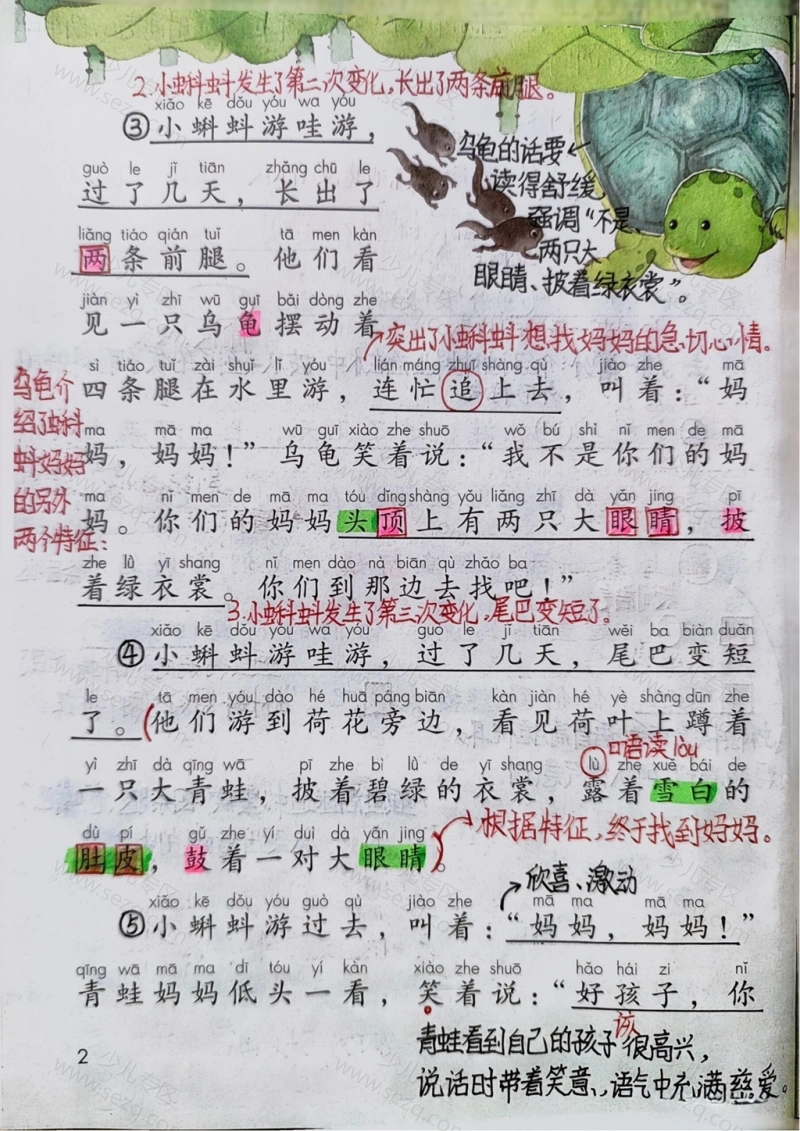 2.小蝌蚪发生了第二次变化,长出了两条前腿。
xiǎo kē dǒu yóu wa yóu
③小蝌蚪游哇游，
乌龟的话要
读得舒缓,
强调“不是、
两只大
眼睛、披着绿衣裳”。
guò le jǐ tiān zhǎng chū le
过了几天，长出了
liǎng tiáo qián tuǐ tā men kàn
两条前腿。他们看
jiàn yì zhī wū guī bǎi dòng zhe
见一只乌龟摆动着
突出了小蝌蚪想找妈妈的急切心情。
sì tiáo tuǐ zài shuǐ lǐ yóu lián máng zhuī shàng qù jiào zhe mā
四条腿在水里游，连忙追上去，叫着：“妈
乌龟介
绍了蝌
蚪妈妈
的另外
两个特征:
ma mā ma wū guī xiào zhe shuō wǒ bú shì nǐ men de mā
妈，妈妈！”乌龟笑着说：“我不是你们的妈
ma nǐ men de mā ma tóu dǐng shàng yǒu liǎng zhī dà yǎn jing pī
妈。你们的妈妈头顶上有两只大眼睛，披
zhe lǜ yī shang nǐ men dào nà biān qù zhǎo ba
着绿衣裳。你们到那边去找吧！”
3.小蝌蚪发生了第三次变化,尾巴变短了。
xiǎo kē dǒu yóu wa yóu guò le jǐ tiān wěi ba biàn duǎn
④小蝌蚪游哇游，过了几天，尾巴变短
le tā men yóu dào hé huā páng biān kàn jiàn hé yè shàng dūn zhe
了。他们游到荷花旁边，看见荷叶上蹲着
口语读lòu
yì zhī dà qīng wā pī zhe bì lǜ de yī shang lù zhe xuě bái de
一只大青蛙，披着碧绿的衣裳，露着雪白的
dù pí gǔ zhe yí duì dà yǎn jing
肚皮，鼓着一对大眼睛。
根据特征,终于找到妈妈。
欣喜、激动
xiǎo kē dǒu yóu guò qù jiào zhe mā ma mā ma
⑤小蝌蚪游过去，叫着：“妈妈，妈妈！”
qīng wā mā ma dī tóu yí kàn xiào zhe shuō hǎo hái zi nǐ
青蛙妈妈低头一看，笑着说：“好孩子，你
该
青蛙看到自己的孩子很高兴,
说话时带着笑意,语气中充满慈爱。
2